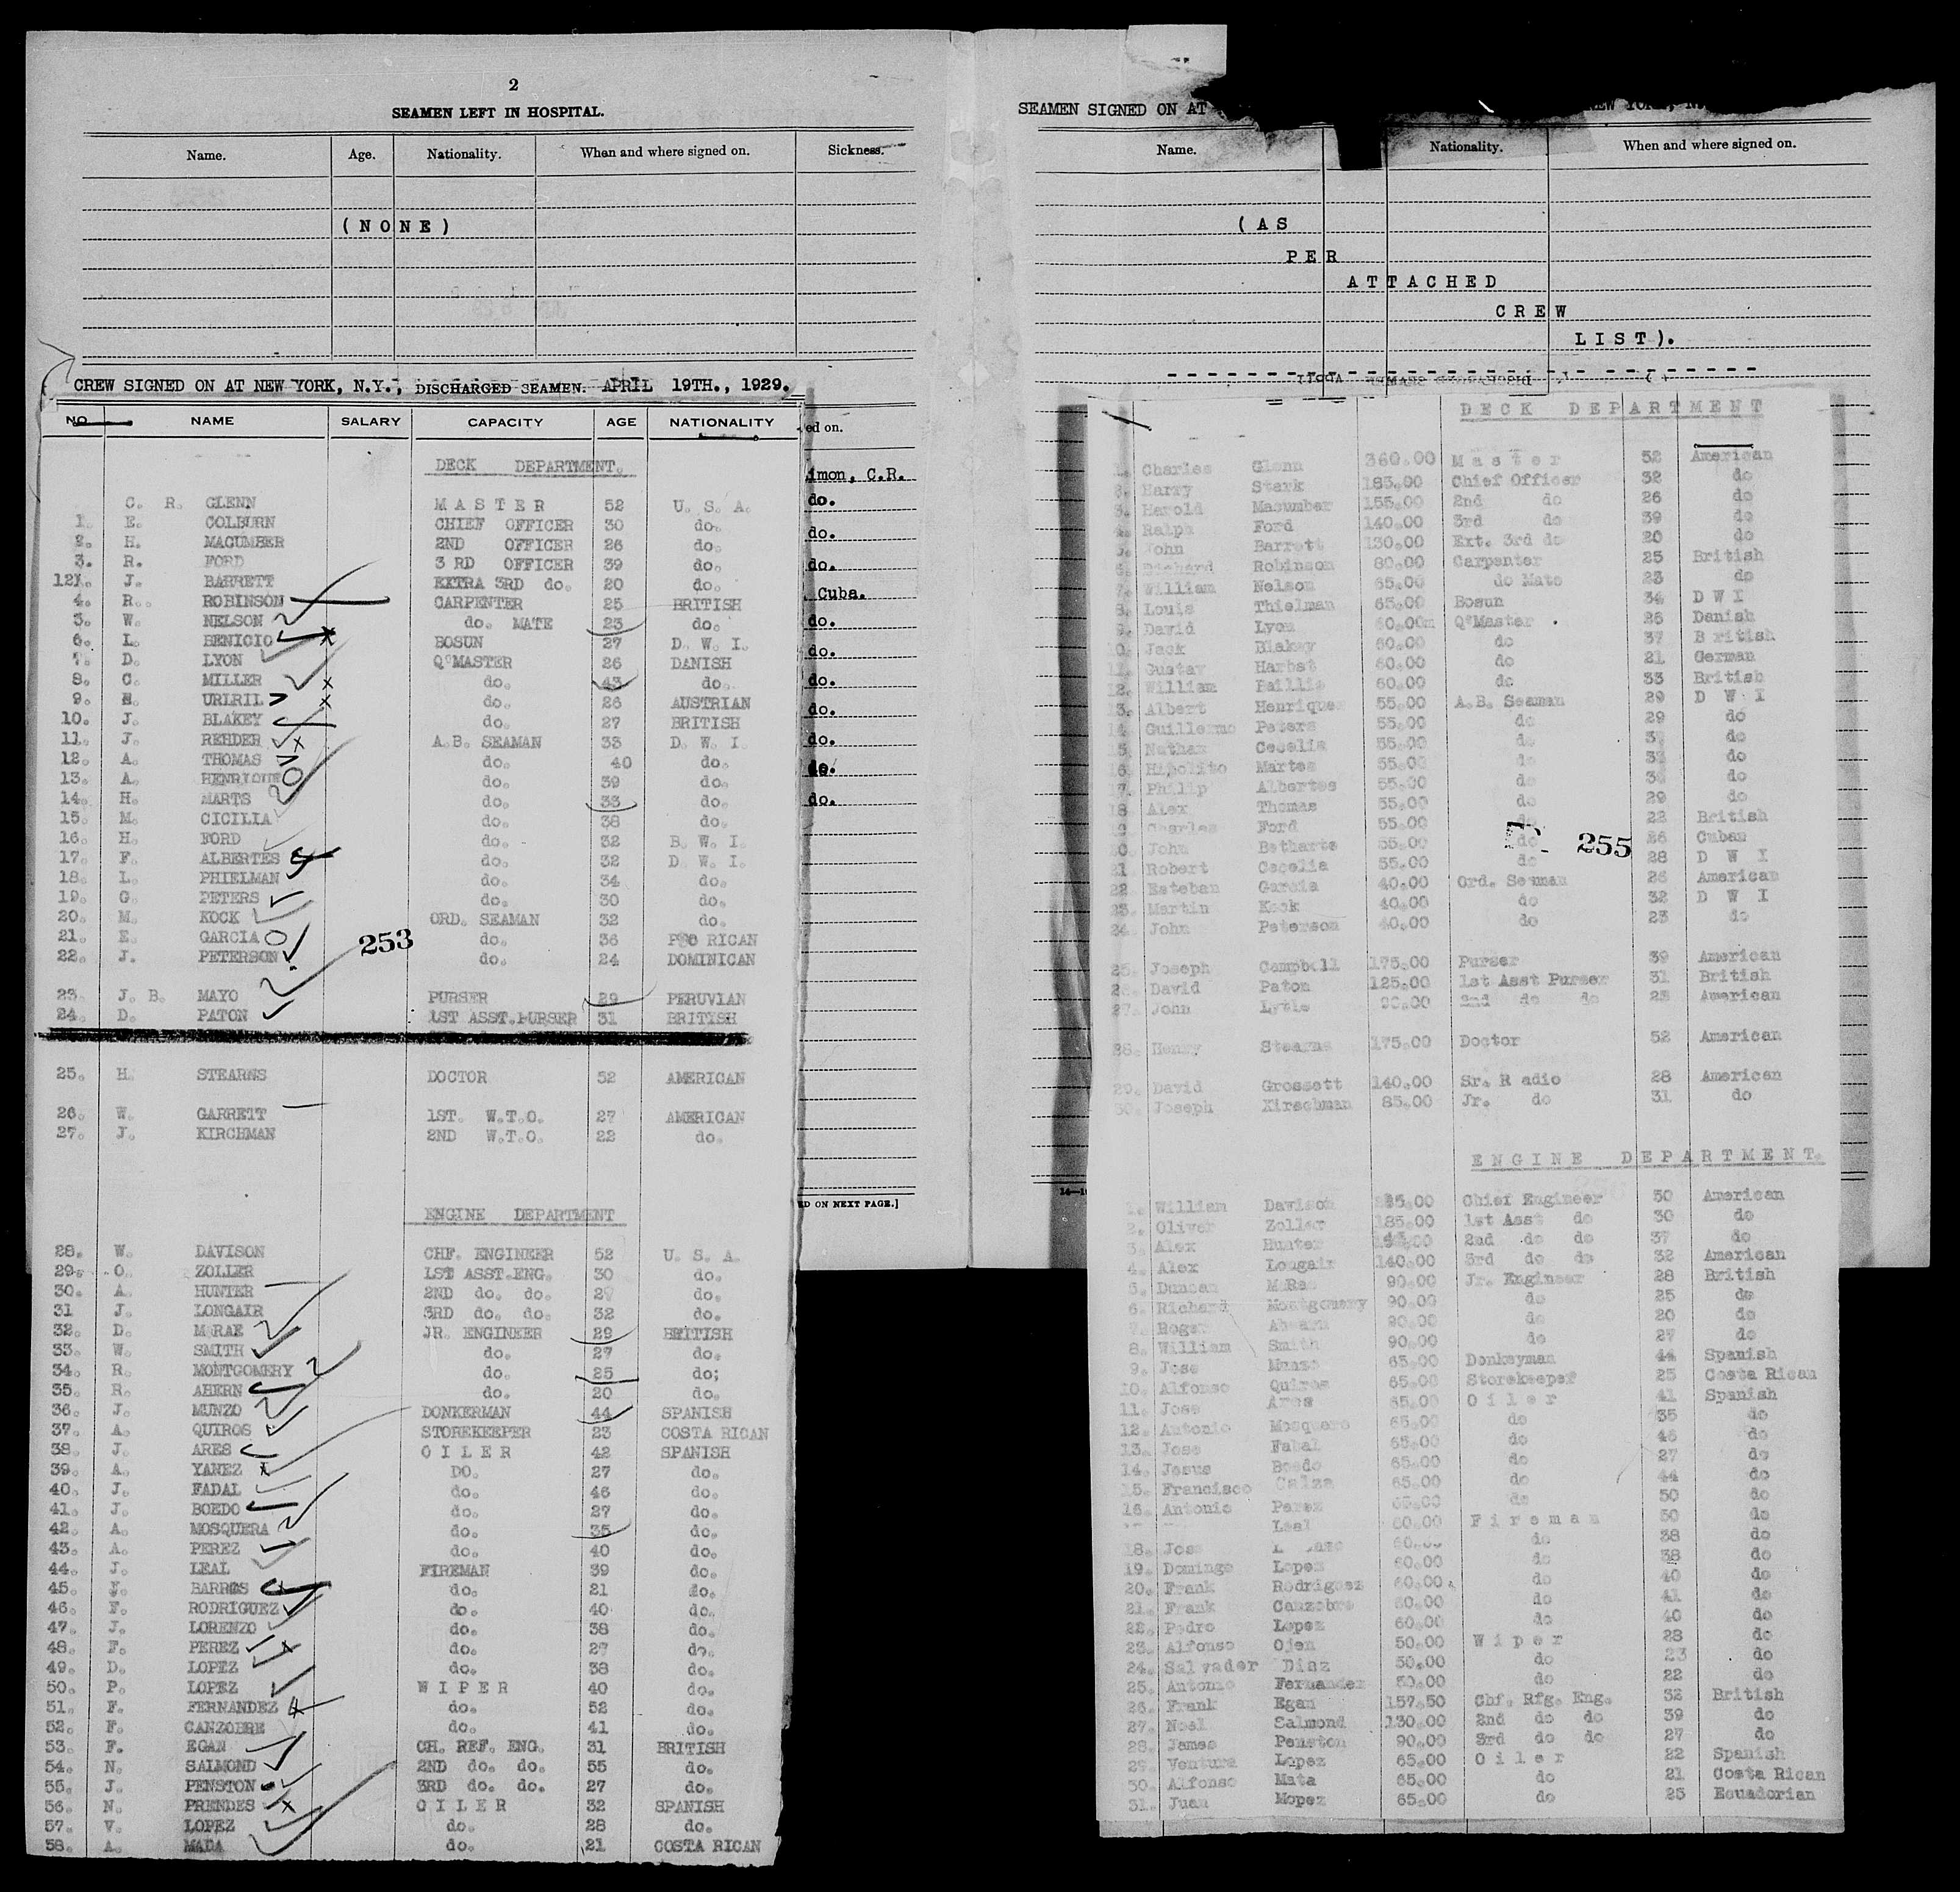 2
SEAMEN LEFT IN HOSPITAL.
Name. Age. Nationality. When and where signed on. Sickness.
(NONE)
CREW SIGNED ON AT NEW YORK, N.Y., DISCHARGED SEAMEN. APRIL 19TH., 1929.
NO. NAME SALARY CAPACITY AGE NATIONALITY
DECK DEPARTMENT.
C. R. GLENN MASTER 52 U. S. A.
1. E. COLBURN CHIEF OFFICER 30 do.
2. H. MACUMBER 2ND OFFICER 26 do.
3. R. FORD 3 RD OFFICER 39 do.
121. J. BARRETT EXTRA 3RD do. 20 do.
4. R. ROBINSON CARPENTER 25 BRITISH
5. W. NELSON do. MATE 23 do.
6. L. BENICIO BOSUN 27 D. W. I.
7. D. LYON Q°MASTER 26 DANISH
8. C. MILLER do. 43 do.
9. H. URLRIL do. 26 AUSTRIAN
10. J. BLAKEY do. 27 BRITISH
11. J. REHDER A.B. SEAMAN 33 D. W. I.
12. A. THOMAS do. 40 do.
13. A. HENRIQUE do. 39 do.
14. H. MARTS do. 33 do.
15. M. CICILIA do. 38 do.
16. H. FORD do. 32 B. W. I.
17. F. ALBERTES do. 32 D. W. I.
18. L. PHIELMAN do. 34 do.
19. G. PETERS do. 30 do.
20. M. KOCK ORD. SEAMAN 32 do.
21. E. GARCIA do. 36 RICAN
253
22. J. PETERSON do. 24 DOMINICAN
23. J. B. MAYO PURSER 29 PERUVIAN
24. D. PATON 1ST ASST.PURSER 31 BRITISH
25. H. STEARNS DOCTOR 52 AMERICAN
26. W. GARRETT 1ST. W.T.O. 27 AMERICAN
27. J. KIRCHMAN 2ND W.T.O. 22 do.
ENGINE DEPARTMENT
28. W. DAVISON CHF. ENGINEER 52 U. S. A.
29. O. ZOLLER 1ST ASST.ENG. 30 do.
30. A. HUNTER 2ND do. do. do.
31 J. LONGAIR 3RD do. do. 32 do.
32. D. McRAE JR. ENGINEER 29 BRITISH
33. W. SMITH do. 27 do.
34. R. MONTGOMERY do. 25 do;
35. R. AHERN do. 20 do.
36. J. MUNZO DONKERMAN 44 SPANISH
37. A. QUIROS STOREKEEPER 23 COSTA RICAN
38. J. ARES OILER 42 SPANISH
39. A. YANEZ DO. 27 do.
40. J. FADAL do. 46 do.
41. J. BOEDO do. 27 do.
42. A. MOSQUERA do. 35 do.
43. A. PEREZ do. 40 do.
44. J. LEAL FIREMAN 39 do.
45. BARROS do. 21 do.
46. F. RODRIGUEZ do. 40 do.
47. J. LORENZO do. 38 do.
48. F. PEREZ do. 27 do.
49. D. LOPEZ do. 38 do.
50. P. LOPEZ WIPER 40 do.
51. F. FERNANDEZ do. 52 do.
52. F. CANZOBRE do. 41 do.
53. F. EGAN CH. REF. ENG. 31 BRITISH
54. N. SALMOND 2ND do. do. 55 do.
55. J. PENSTON 3RD do. do. 27 do.
56. N. PRENDES OILER 32 SPANISH
57. V. LOPEZ do. 28 do.
58. A. MADA do. 21 COSTA RICAN
ed on.
imon, C.R.
do.
do.
do.
Cuba.
do.
do.
do.
do.
do.
do.
do.
ED ON NEXT PAGE.]
SEAMEN SIGNED ON AT NEW YORK, N.
Name. Nationality. When and where signed on.
(AS
PER
ATTACHED
CREW
LIST).
DECK DEPARTMENT
1. Charles Glenn 360.00 Master 52 American
2. Harry Stark 185.00 Chief Officer 32 do
3. Harold Macumber 155.00 2nd do 26 do
4. Ralph Ford 140.00 3rd do 39 do
5. John Barrett 130.00 Ext. 3rd do 20 do
6. Richard Robinson 80.00 Carpenter 25 British
7. William Nelson 65.00 do Mate 23 do
8. Louis Thielman 65.00 Bosun 34 D W I
9. David Lyon 60.00 Q°Master 26 Danish
10. Jack Blakey 60.00 do 37 British
11. Gustav Harbst 60.00 do 21 German
12. William Baillie 60.00 do 33 British
13. Albert Henriques 55.00 A.B. Seaman 29 D W I
14. Guillermo Peters 55.00 do 29 do
15. Nathan Cecelia 55.00 do do
16. Hipolito Martes 55.00 do do
17. Philip Albertes 55.00 do do
18 Alex Thomas 55.00 do 29 do
19 Charles Ford 55.00 do 22 British
20. John Betharte 55.00 do 26 Cuban
255
21. Robert Cecelia 55.00 do 28 D W I
22. Esteban Garcia 40.00 Ord. Seaman 26 American
23. Martin Kock 40.00 do 32 D W I
24. John Peterson 40.00 do 23 do
25. Joseph Campbell 175.00 Purser 39 American
26. David Paton 125.00 1st Asst Purser 31 British
27. John Lytle 90.00 2nd do do 23 American
28. Henry Stearns 175.00 Doctor 52 American
29. David Grossett 140.00 Sr. Radio 28 American
30. Joseph Kirschman 85.00 Jr. do 31 do
ENGINE DEPARTMENT.
1. William Davison Chief Engineer 50 American
2. Oliver Zoller 185.00 1st Asst do 30 do
3. Alex Hunter 2nd do do 37 do
4. Alex Longair 140.00 3rd do do 32 American
5. Duncan McRae 90.00 Jr. Engineer 28 British
6. Richard Montgomery 90.00 do 25 do
7. Roger Ahearn 90.00 do 20 do
8. William Smith 90.00 do 27 do
9. Jose Munzo 65.00 Donkeyman 44 Spanish
10. Alfonso Quiros 65.00 Storekeeper 25 Costa Rican
11. Jose Ares 65.00 Oiler 41 Spanish
12. Antonio Mosquero 65.00 do 35 do
13. Jose Fabal 65.00 do 46 do
14. Jesus Boedo 65.00 do 27 do
15. Francisco Calza 65.00 do 44 do
16. Antonio Perez 65.00 do 50 do
Leal 60.00 Fireman 50 do
18. Jose 60.00 do 38 do
19. Domingo Lopez 60.00 do 38 do
20. Frank Rodriguez 60.00 do 40 do
21. Frank Canzobre 60.00 do 41 do
22. Pedro Lopez 60.00 do 40 do
23. Alfonso Ojen 50.00 Wiper 28 do
24. Salvador Diaz 50.00 do 23 do
25. Antonio Fernandez 50.00 do 22 do
26. Frank Egan 157.50 Chf. Rfg. Eng. 32 British
27. Noel Salmond 130.00 2nd do do 39 do
28. James Penston 90.00 3rd do do 27 do
29. Ventura Lopez 65.00 Oiler 22 Spanish
30. Alfonso Mata 65.00 do 21 Costa Rican
31. Juan Mopez 65.00 do 23 Ecuadorian